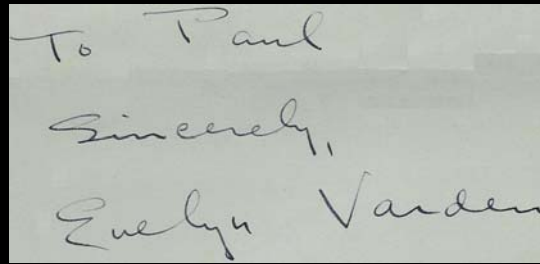 To Paul
Sincerely,
Evelyn Varden